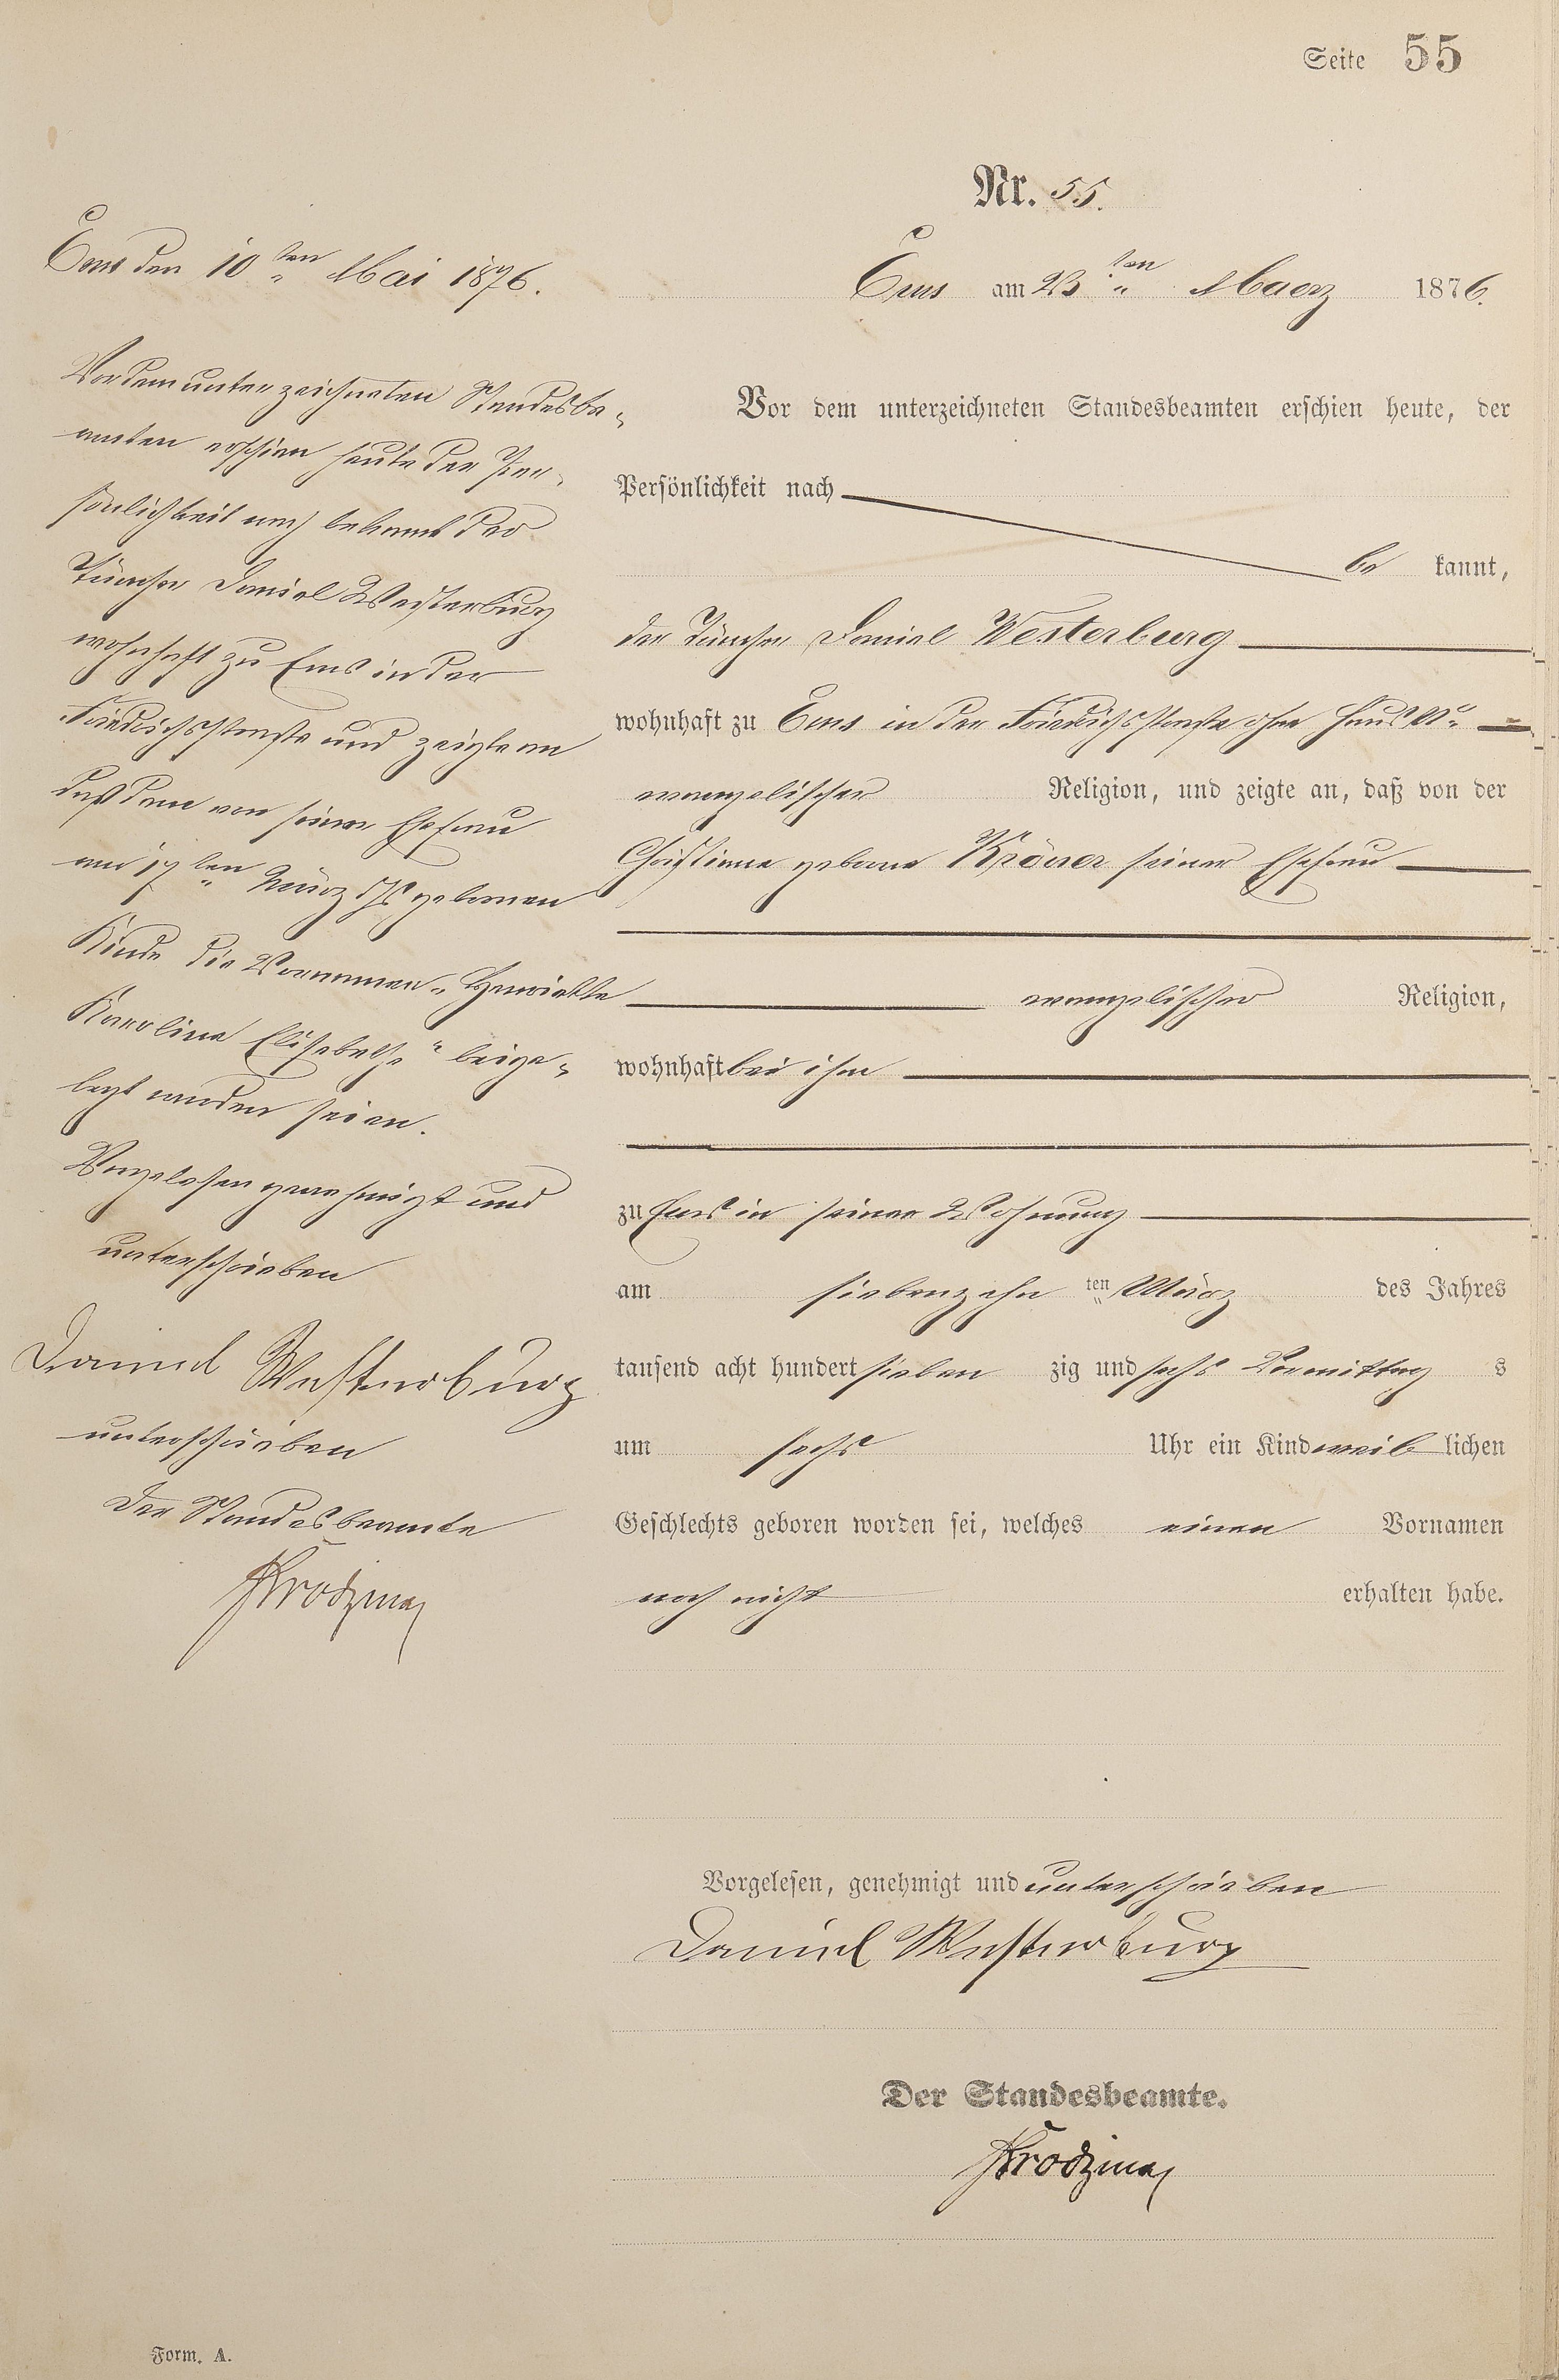 Seite 55
Nr. 55.
Ems am 23ten Maerz 1876.
Vor dem unterzeichneten Standesbeamten erschien heute, der
Persönlichkeit nach
be kannt,
der Tüncher Daniel Westerburg
wohnhaft zu Ems in der Friedrichsstraße ohne Haus No
evangelischer Religion, und zeigte an, daß von der
Christiane geborne Kröner seiner Ehefrau
evangelischer Religion,
wohnhaft bei ihm
zu Ems in seiner Wohnung
am siebenzehn ten März des Jahres
tausend acht hundert sieben zig und sechs Vormittag s
um sechs Uhr ein Kind weib lichen
Geschlechts geboren worden sei, welches einen Vornamen
noch nicht erhalten habe.
Vorgelesen, genehmigt und unterschrieben
Daniel Westerburg
Der Standesbeamte.
Ems den 10ten Mai 1876.
Vor dem unterzeichneten Standesbe-
amten erschien heute der Per-
sönlichkeit nach bekannt der
Tüncher Daniel Westerburg
wohnhaft zu Ems in der
Friedrichsstraße und zeigte an
daß dem von seiner Ehefrau
am 17ten März d Js geborenen
Kinde die Vornamen "Henriette
Karoline Elisabethe" beige-
legt worden seien.
Vorgelesen genehmigt und
unterschrieben
Daniel Westerburg
unterschrieben
Der Standesbeamte
Form. A.